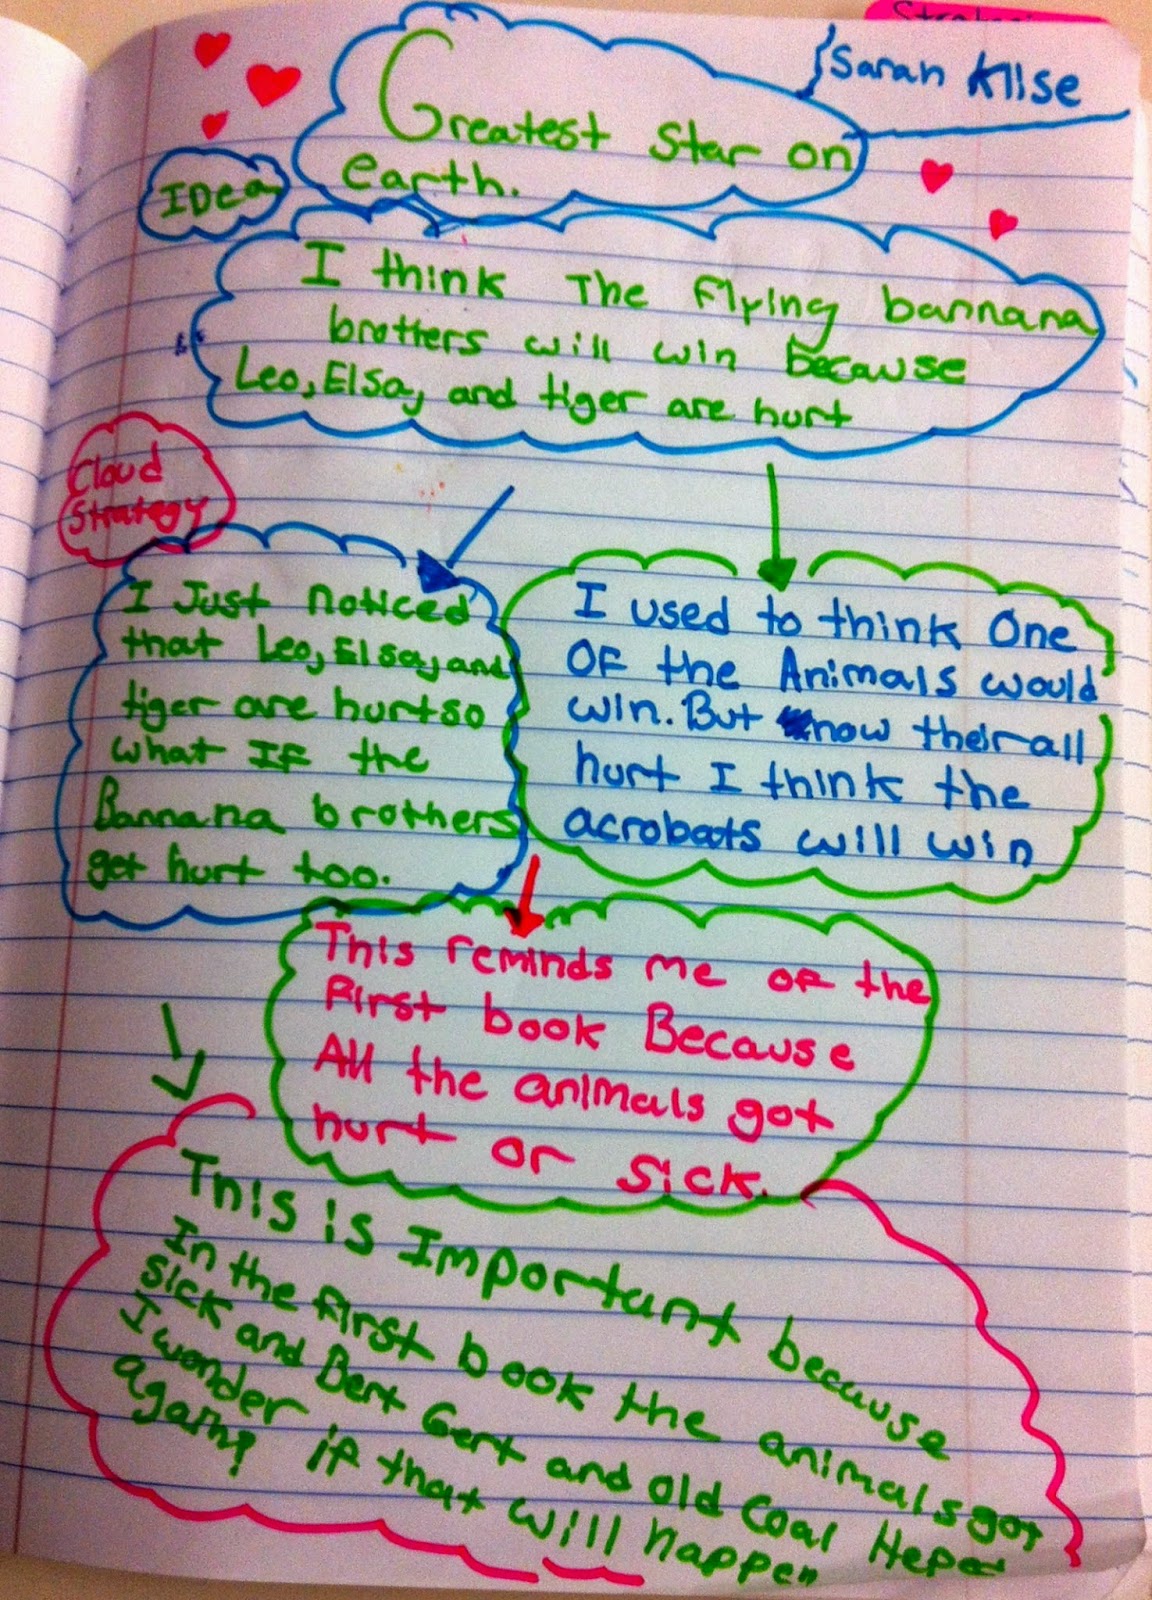 Sarah Klise
Greatest Star on
earth.
IDea
I think The Flying bannana
brothers will win because
Leo, Elsa, and tiger are hurt
Cloud
Strategy
I Just noticed
that Leo, Elsa, and
tiger are hurt so
what IF the
Bannana brothers
get hurt too.
I used to think One
OF the Animals would
win. But now their all
hurt I think the
acrobats will win
This reminds me of the
First book Because
All the animals got
hurt or sick.
This is Important because
In the first book the animals got
sick and Bert Gert and old Coal Heped
I wonder if that will happen
again?